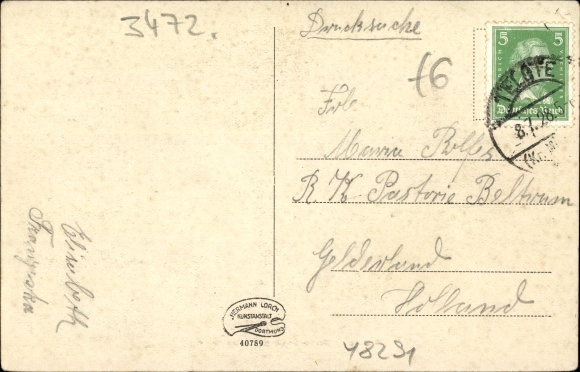 3472.
Drucksache
5 5
Deutsches Reich
TECGTE
8.7.28
16
Frl.
Maria Rolfes
R K Pastorie Beltrum
Gelderland
Holland
Elisabeth
Franziska
HERMANN LORCH
KUNSTANSTALT
DORTMUND
40759
48291